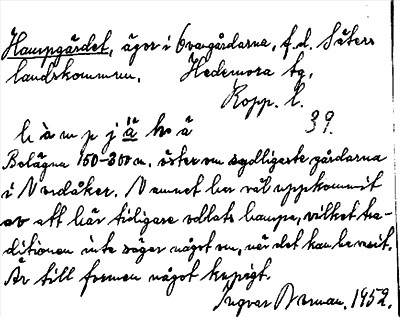 Hampgärdet, ägor i Ovangårdarna, f.d. Säters
landskommun, Hedemora tg,
Kopp. l.
h à m p j ä̀ ḷ ä 39.
Belägna 150-300 m. öster om sydligaste gårdarna
i Nordåker. Namnet har väl uppkommit
av att här tidigare odlats hampa, vilket tra-
ditionen inte säger något om, när det kan ha varit.
Är till formen något kupigt.
Ingvar Norman. 1952.